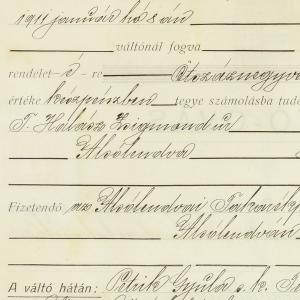 1911 január hó 8 án
váltónál fogva
rendelet-é-re Ötszáznegyv
értéke készpénzben tegye számolásba tudó
T. Halász Zsigmond úr
Alsólendva
Fizetendő az Alsólendvai Takarék
Alsólendván
A váltó hátán: Petrik Gyula s.k.